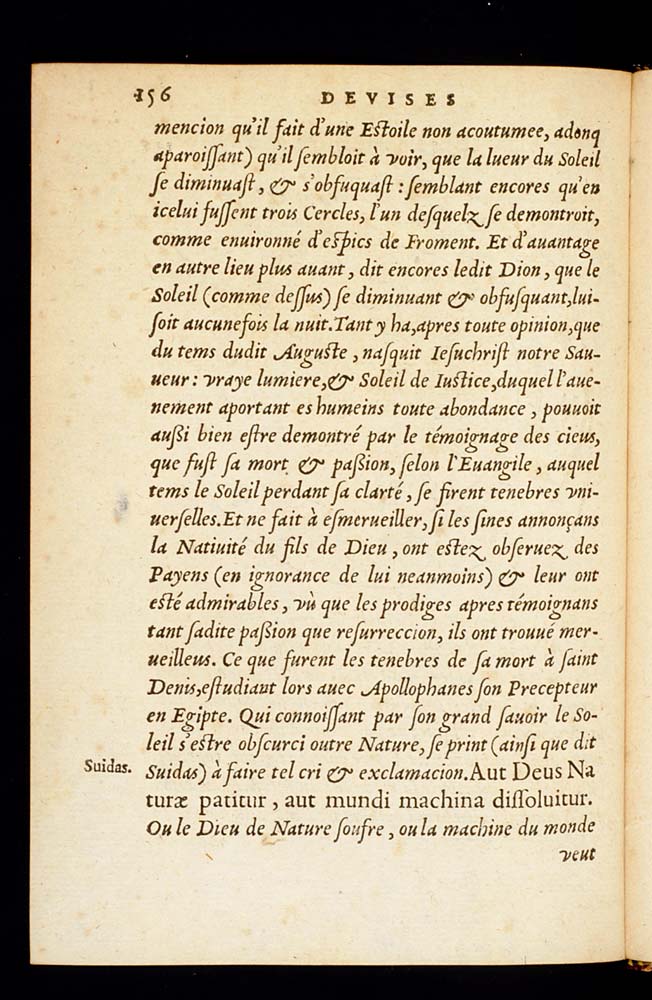 156 DEVISES
mencion qu'il fait d'une Estoile non acoutumee, adonq
aparoiſſant) qu'il ſembloit à voir, que la lueur du Soleil
ſe diminuaſt, & s'obfuquaſt : ſemblant encores qu'en
icelui fuſſent trois Cercles, l'un deſquelz ſe demontroit,
comme enuironné d'eſpics de Froment. Et d'auantage
en autre lieu plus auant, dit encores ledit Dion, que le
Soleil (comme deſſus) ſe diminuant & obfuſquant, lui-
ſoit aucunefois la nuit. Tant y ha, apres toute opinion, que
du tems dudit Auguſte, naſquit Ieſuchriſt notre Sau-
ueur : vraye lumiere, & Soleil de Iuſtice, duquel l'aue-
nement aportant es humeins toute abondance, pouuoit
außi bien eſtre demontré par le témoignage des cieus,
que fuſt ſa mort & paßion, ſelon l'Euangile, auquel
tems le Soleil perdant ſa clarté, ſe firent tenebres vni-
uerſelles. Et ne fait à eſmerueiller, ſi les ſines annonçans
la Natiuité du fils de Dieu, ont eſtez obſeruez des
Payens (en ignorance de lui neanmoins) & leur ont
eſté admirables, vù que les prodiges apres témoignans
tant ſadite paßion que reſurreccion, ils ont trouué mer-
ueilleus. Ce que furent les tenebres de ſa mort à ſaint
Denis, eſtudiant lors auec Apollophanes ſon Precepteur
en Egipte. Qui connoiſſant par ſon grand ſauoir le So-
leil s'eſtre obſcurci outre Nature, ſe print (ainſi que dit
Suidas.
Suidas) à faire tel cri & exclamacion. Aut Deus Na
turæ patitur, aut mundi machina diſſoluitur.
Ou le Dieu de Nature ſoufre, ou la machine du monde
veut